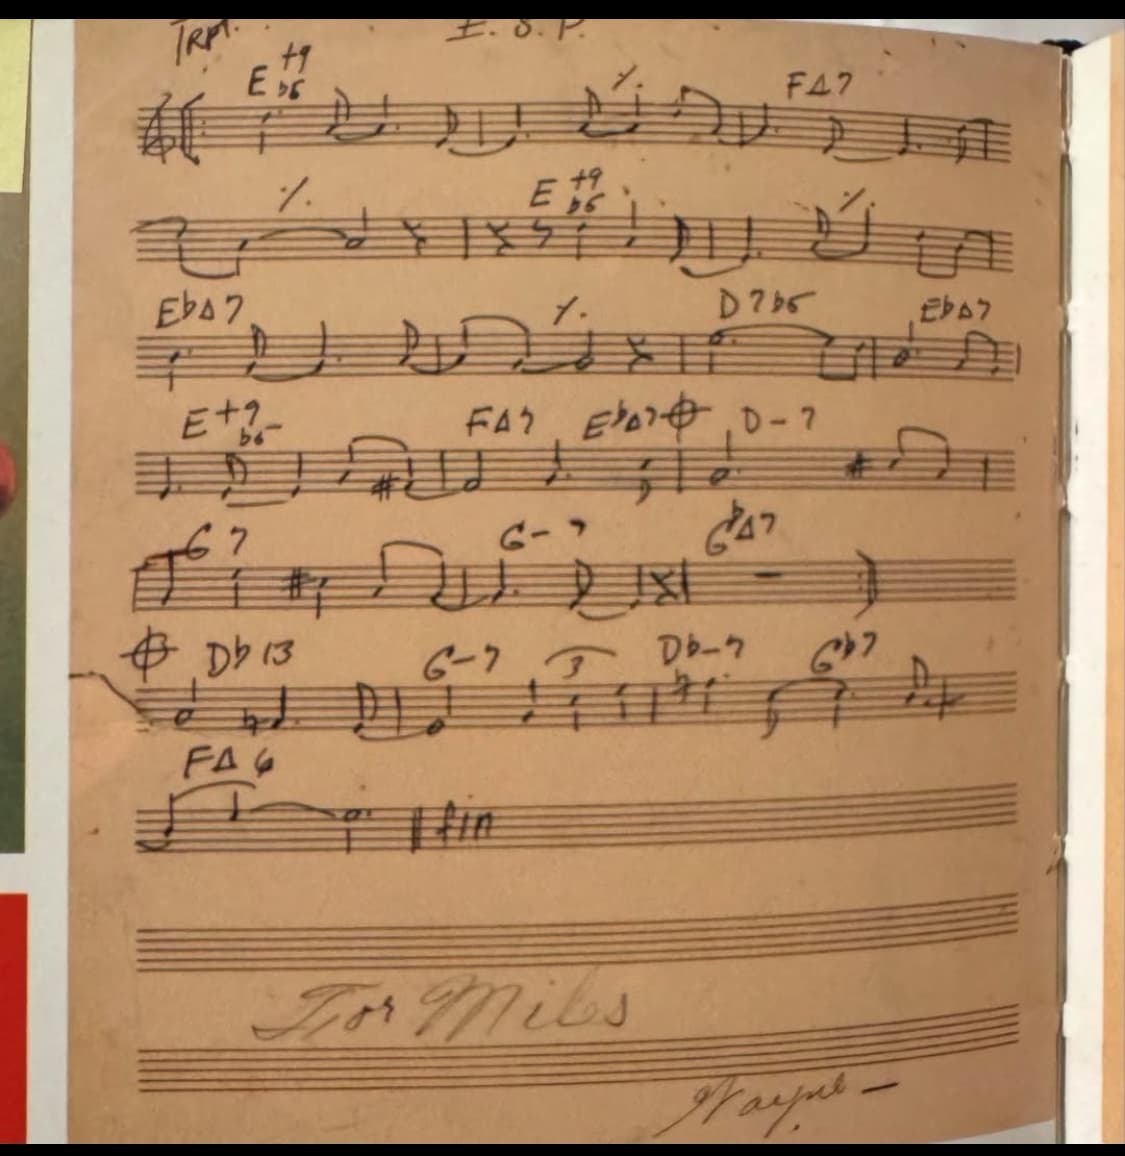 TRPT. E. S. P.
E +9 b5 ٪ F∆7
٪ E +9 b5 ٪
Eb∆7 ٪ D7b5 Eb∆7
E+9 b5 F∆7 Eb∆7 D-7
G7 G-7 Gb∆7
Db13 G-7 3 Db-7 Gb7
F∆6
fin
For Miles
Wayne –